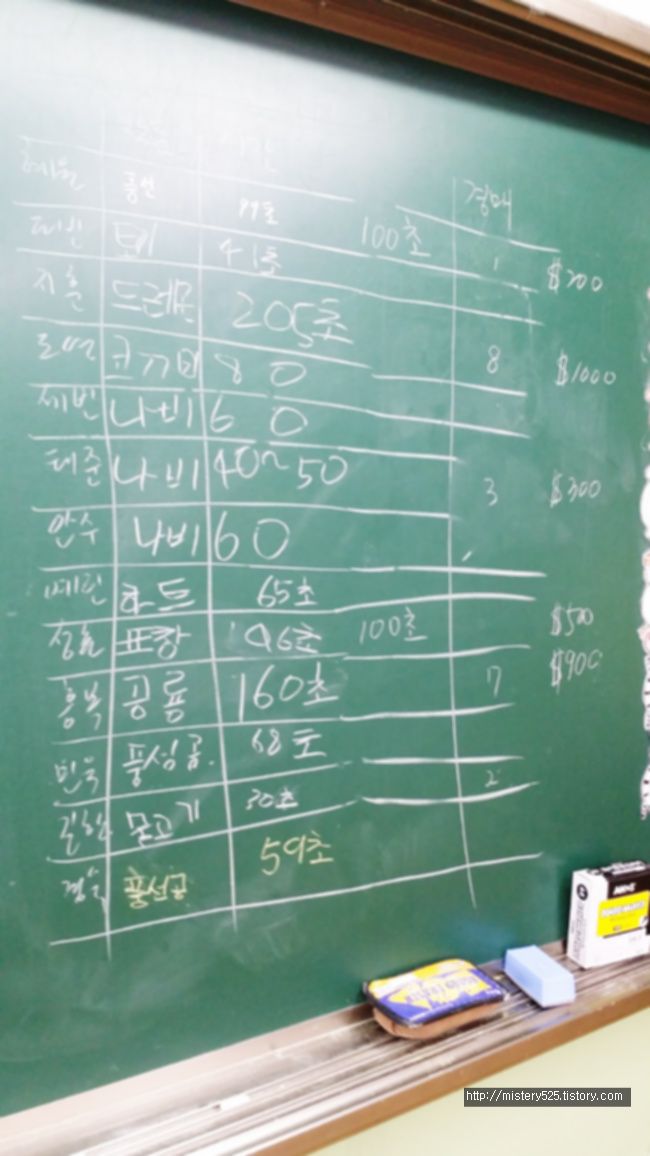 경매
풍선 99초
토끼 41초 100초 1 $200
지훈 드레곤 205초
코끼리 80 8 $1000
세빈 나비 60
태준 나비 40~50 3 $300
만수 나비 60
하트 65초
표창 96초 100초 $500
공룡 160초 7 $900
민욱 풍선공. 68초
물고기 30초 2
풍선공 59초
http://mistery525.tistory.com